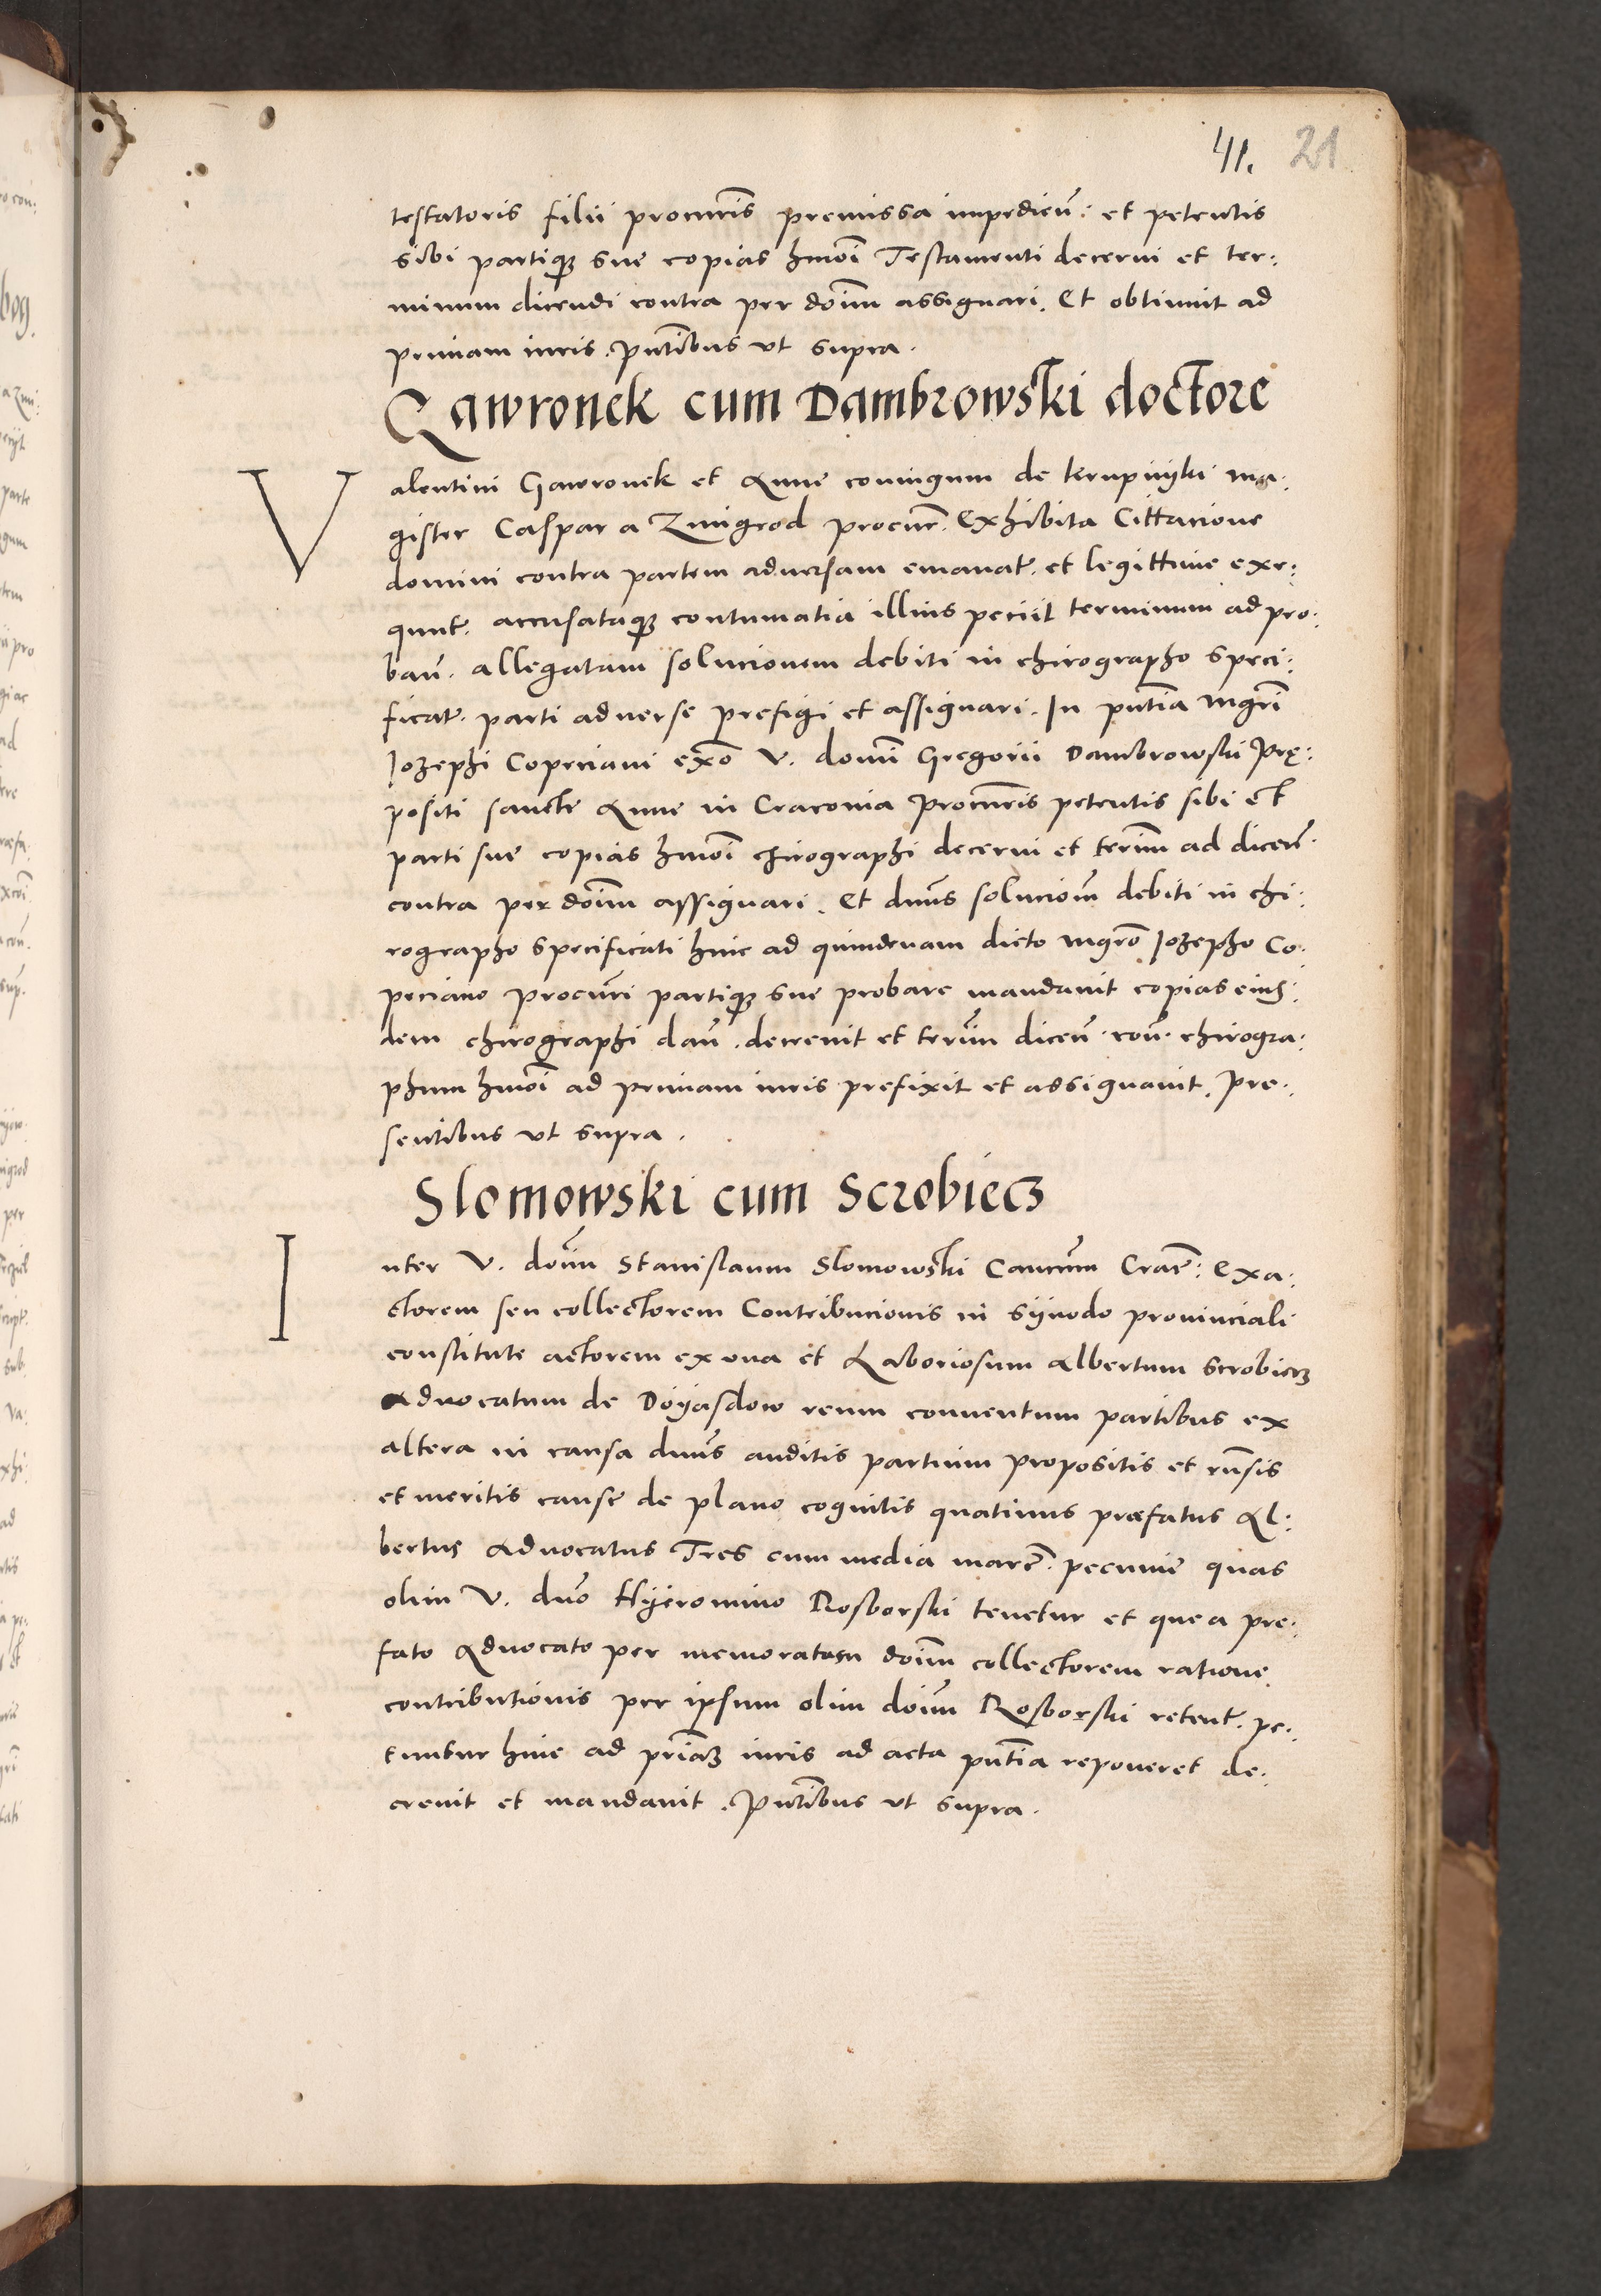 41. 21
testatoris filii procuris premissa impedien̄: et petentis
sibi partiqȝ sue copias hmōi Testamenti decerni et ter:
minum dicendi contra per dōim assignari. Et obtinuit ad
primam iuris. Pn̄tibus vt supra.
Gawronek cum Dambrowski doctore
Valentini Gawronek et Anne coniugum de ma:
gister Caspar a Zmigrod procur. Exhibita Cittacione
domini contra partem aduersam emanat. et legittime exe:
qunt. accusataqȝ contumatia illius petiit terminum ad pro:
ban̄. allegatam solucionem debiti in chirographo speci:
ficat. parti aduerse prefigi et assignari. In pn̄tia mgrī
Jozephi Copeciani exō V. domī Gregorii Dambrowski Prę:
positi sancte Anne in Cracouia Procuris petentis sibi et
parti sue copias hmōi chirographi decerni et termī ad dicen̄.
contra per dōim assignari. Et dn̄us soluciōm debiti in chi:
rographo specificati hinc ad quindenam dicto mgrō Jozepho Co:
peciano Procuri partiqȝ sue probare mandauit copias eius:
dem chirographi dan̄. decreuit et termī dicen̄. con̄. chirogra:
phum hmōi ad primam iuris prefixit et assignauit. Pre:
sentibus vt supra.
Slomowski cum Scrobiecȝ
Inter V. dōim Stanislaum Slomowski Canc̄um Crac̄: Exa:
ctorem seu collectorem Contribucionis in sijnodo prouinciali
constitute actorem ex vna et Laboriosum Albertum Scrobiecȝ
Aduocatum de reum conuentum partibus ex
altera in causa dn̄us auditis partium propositis et rn̄sis
et meritis cause de plano cognitis quatinus præfatus Al:
bertus Aduocatus Tres cum media marc̄. pecunie quas
olim V. dn̄o Hijeronimo Rosborski tenetur et que a pre:
fato Aduocato per memoratum dōim collectorem ratione
contributionis per ipsum olim dōim Rosborski retent. pe:
tuntur hinc ad prīaȝ iuris ad acta pn̄tia reponeret de:
creuit et mandauit. Pn̄tibus vt supra.